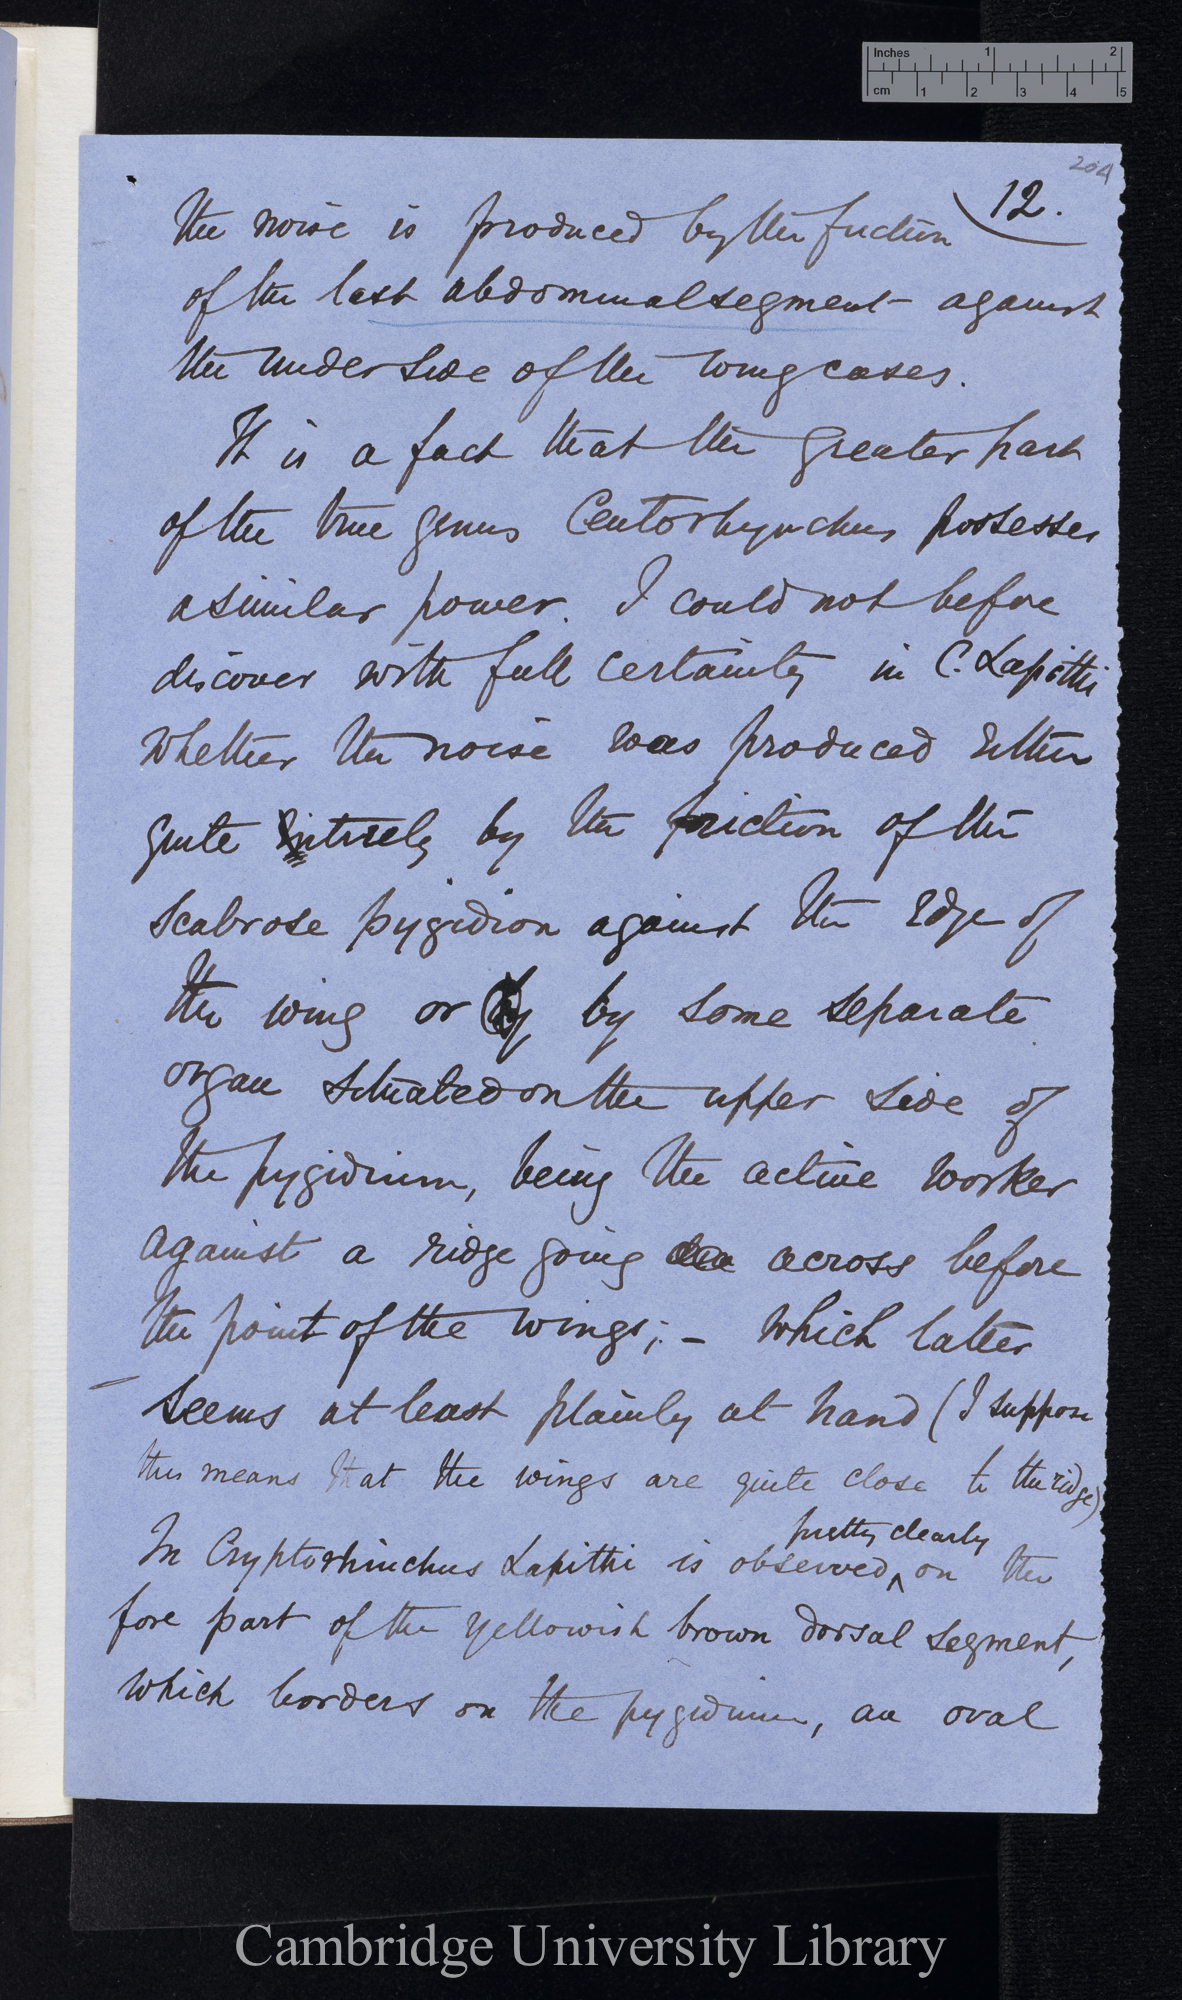 Inches 1 2
cm 1 2 3 4 5
204
12.
the noise is produced by the friction
of the last abdominal segment against
the under side of the wing cases.
It is a fact that the greater part
of the true genus Ceutorhynchus possesses
a similar power. I could not before
discover with full certainty in C. Lapithi
whether the noise was produced either
quite entirely by the friction of the
scabrose pygidion against the edge of
the wing or by by some separate
organ situated on the upper side of
the pygidium, being the active worker
against a ridge going across before
the point of the wings; – which latter
seems at least plainly at hand (I suppose
this means that the wings are quite close to the ridge)
pretty clearly
In Cryptorhinchus Lapithi is observed ^ on the
fore part of the yellowish brown dorsal segment,
which borders on the pygidium, an oval
Cambridge University Library